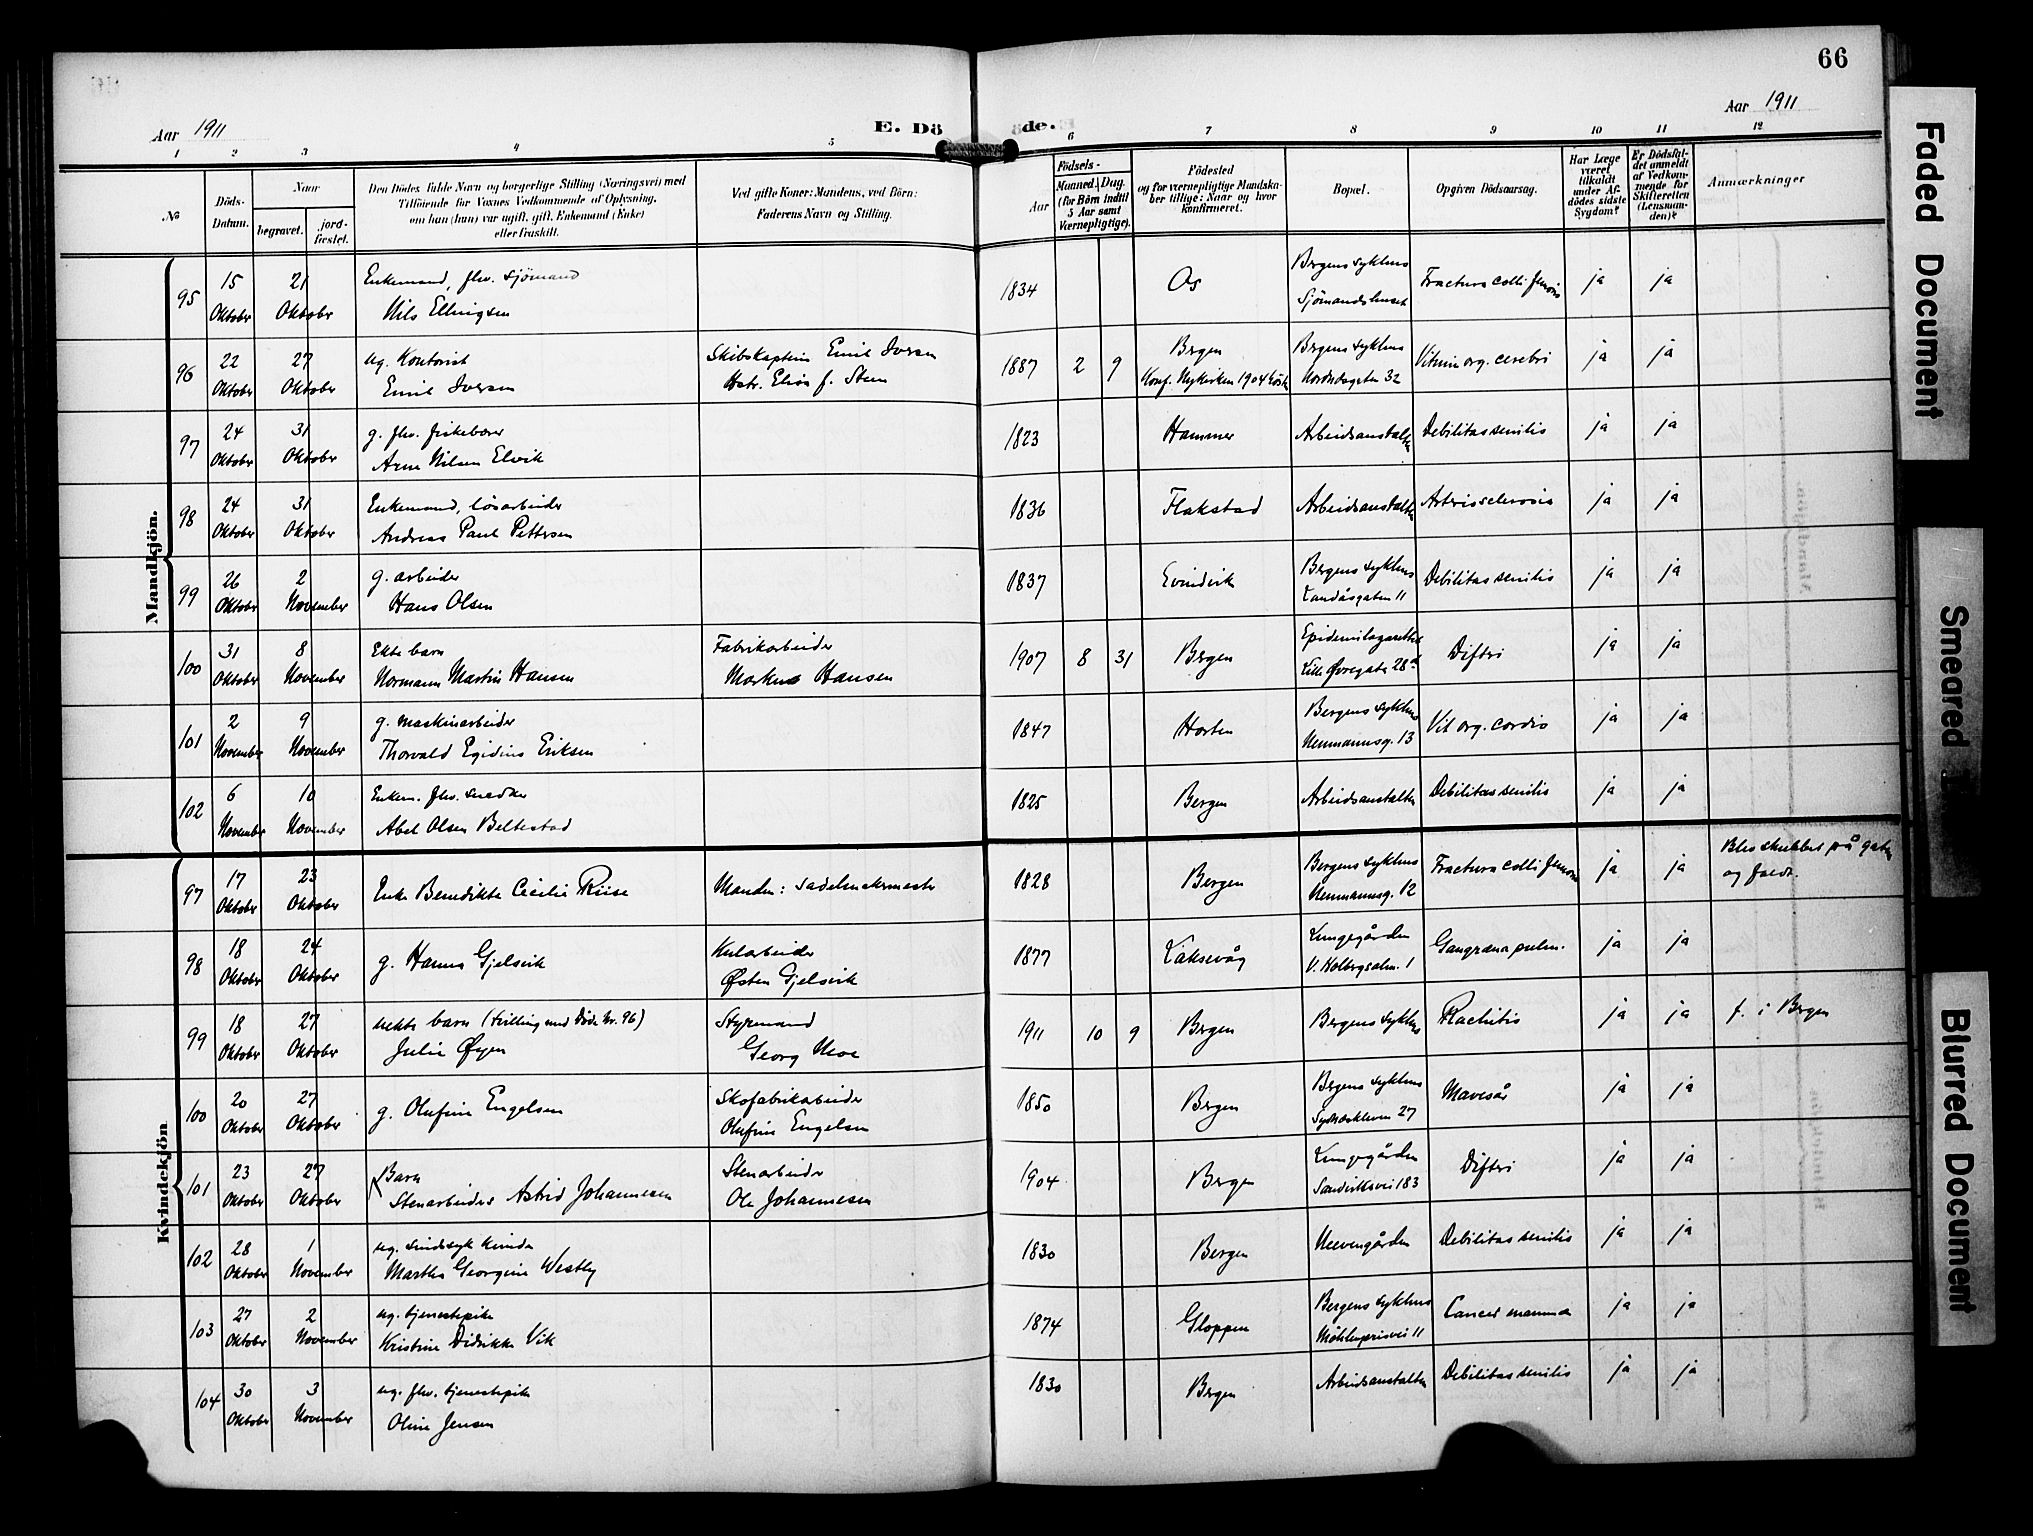 66
Aar 1911
E. Dö
de.
Aar 1911
1 2 3 4 5 6 7 8 9 10 11 12
No
Döds-
Datum.
Naar
begravet.
jord-
fæstet.
Den Dödes fulde Navn og borgerlige Stilling (Næringsvei) med
Tilföiende for Voxnes Vedkommende af Oplysning,
om han (hun) var ugift, gift, Enkemand (Enke)
eller fraskilt.
Ved gifte Koner: Mandens, ved Börn:
Faderens Navn og Stilling.
Aar
Födsels-
Maaned. Dag.
(for Börn indtil
5 Aar samt
Værnepligtige).
Födested
og for værnepligtige Mandska-
ber tillige: Naar og hvor
konfirmeret.
Bopæl.
Opgiven Dödsaarsag.
Har Læge
været
tilkaldt
under Af-
dödes sidste
Sygdom?
Er Dödsfal-
det anmeldt
af Vedkom-
mende for
Skifteretten
(Lensman-
den)?
Anmærkninger
Mandkjön.
95 15 Oktober 21 Oktober Enkemand, fhv. sjömand
Nils Ellingsen 1834 Os Bergens sykhus
Sjömandshuset Fractura colli femoris ja ja
96 22 Oktober 27 Oktober ug. Kontorist
Emil Iversen Skibskaptein Emil Iversen
Hstr. Elisa f. Steen 1887 2 9 Bergen
Konf. Nykirken 1904 höst Bergens sykhus
Nordnesgaten 32 Vitium org. cerebri ja ja
97 24 Oktober 31 Oktober g. fhv. fiskebærer
Arne Nilsen Elvik 1823 Hammer Arbeidsanstalten Debilitas senilis ja ja
98 24 Oktober 31 Oktober Enkemand, lösarbeider
Andreas Paul Pettersen 1836 Flakstad Arbeidsanstalten Arteriosclerosis ja ja
99 26 Oktober 2 November g. arbeider
Hans Olsen 1837 Evindvik Bergens sykhus
Landåsgaten 11 Debilitas senilis ja ja
100 31 Oktober 8 November Ekte barn
Normann Martin Hansen Fabrikarbeider
Markus Hansen 1907 8 31 Bergen Epidemilazarettet
Lille Øvregate 28 Difteri ja ja
101 2 November 9 November g. maskinarbeider
Thorvald Egidius Eriksen 1847 Horten Bergens sykhus
Neumannsg. 13 Vit. org. cordis ja ja
102 6 November 10 November Enkem. fhv. snedker
Abel Olsen Beltestad 1825 Bergen Arbeidsanstalten Debilitas senilis ja ja
Kvindekjön
97 17 Oktober 23 Oktober Enke Benedikte Cecilie Riise Manden: Sadelmakermester 1828 Bergen Bergens sykhus
Neumannsg. 12 Fractura colli femoris ja ja Blev skubbet på gaten
og faldt.
98 18 Oktober 24 Oktober g. Hanna Gjelsvik Kularbeider
Østen Gjelsvik 1877 Laksevåg Lungegården
V. Holbergsalm. 1 Gangræna pulm. ja ja
99 18 Oktober 27 Oktober uekte barn (tvilling med Döde Nr. 96)
Julie Øyen Styrmand
Georg Moe 1911 10 9 Bergen Bergens sykhus Rachitis ja ja f. i Bergen
100 20 Oktober 27 Oktober g. Olufine Engelsen Skofabrikarbeider
Olufine Engelsen 1850 Bergen Bergens sykhus
27 Mavesår ja ja
101 23 Oktober 27 Oktober Barn
Stenarbeider Astrid Johannesen Stenarbeider
Ole Johannesen 1904 Bergen Lungegården
Sandviksvei 183 Difteri ja ja
102 28 Oktober 1 November ug. sindssyk kvinde
Martha Georgine Westby 1830 Bergen Neevengården Debilitas senilis ja ja
103 27 Oktober 2 November ug. tjenestepike
Kristine Didrikke Vik 1874 Gloppen Bergens sykhus
Möhlenprisvei 11 Cancer mamma ja ja
104 30 Oktober 3 November ug. fhv. tjenestepike
Oline Jensen 1830 Bergen Arbeidsanstalten Debilitas senilis ja ja
Faded Document
Smeared
Blurred Document